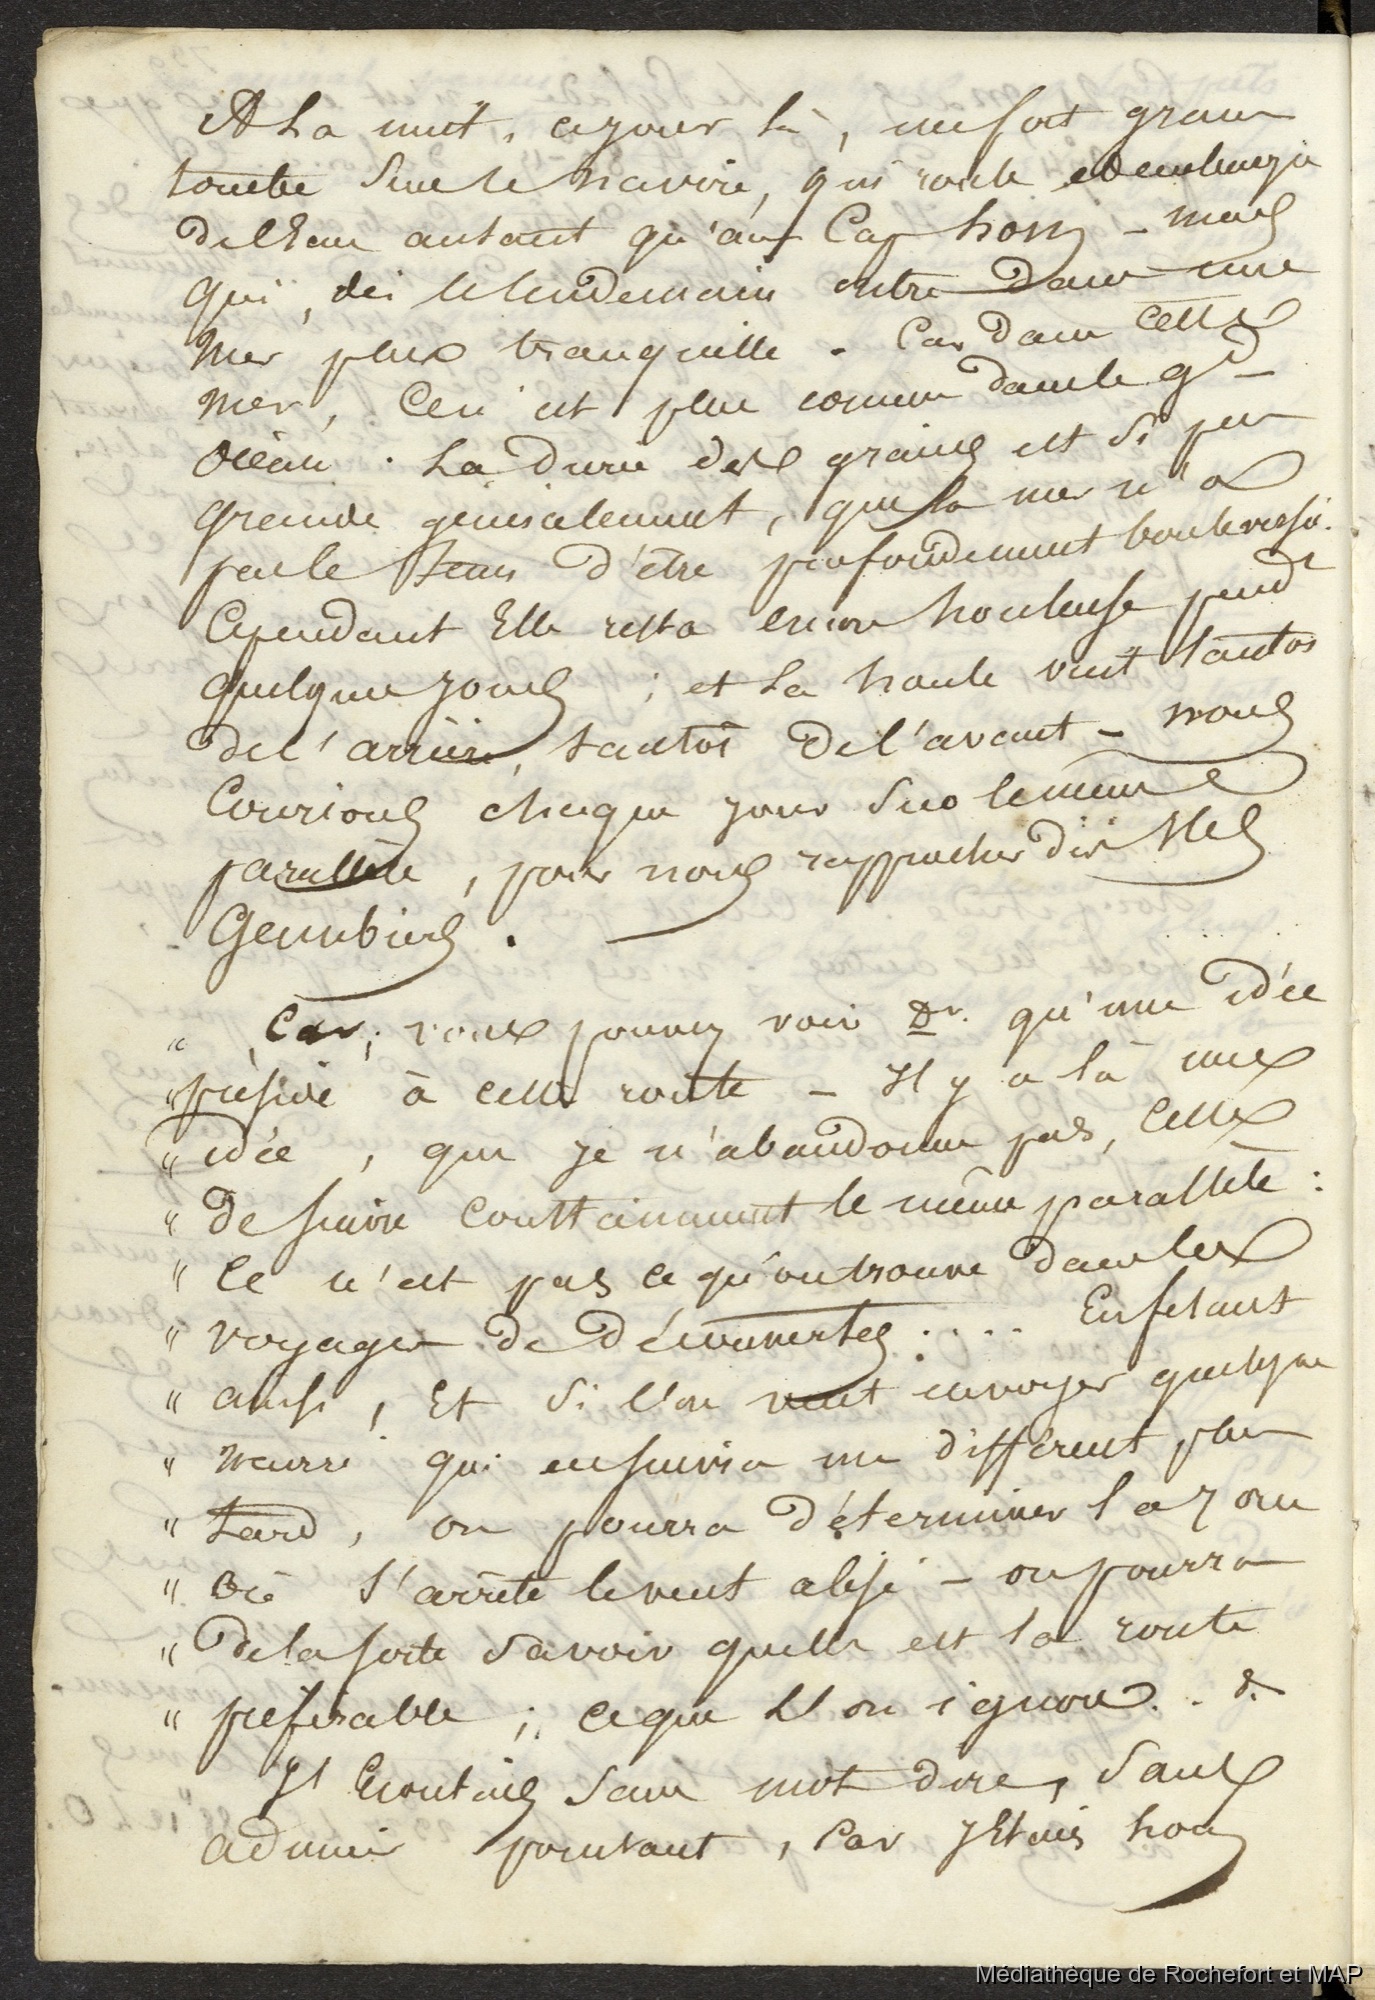 A La nuit, cejour là, un fort grain
tombe Sur le Navire, qui roule et embarque
de l'Eau autant qu'au Cap horn - mais
qui, dès le lendemain entre dans une
Mer plus tranquille. Car dans cette
mer, Ceci est plus comun dans le gd
océan. La durée des grains est si peu
grande généralement, que la mer n'a
pas le tems d'être profondement bouleversée.
Cependant Elle resta encore houleuse pendt
quelques jours ; et La houle vint tantot
de l'arrière, tantot de l'avant - nous
Courions chaque jour sur le même
parallèle, pour nous rapprocher des Iles
Gambiers.
" Car, vous pouvez voir Dr. qu'une idée
" préside à cette route - Il y a là une
" idée, que je n'abandonne pas, Celle
" de suivre Constamment le même parallèle :
" Ce n'est pas ce qu'on trouve dans les
" voyages de découvertes .... En fesant
" ainsi, Et si l'on veut envoyer quelque
" navire qui en suivra un différent plus
" tard, on pourra déterminer la zone
" où s'arrête le vent alisé - on pourra
" de la sorte savoir quelle est la route
" préférable ; ce que l'on ignore. &
J'Ecoutais sans mot dire, Sans
admirer pourtant, Car J'Etais hors